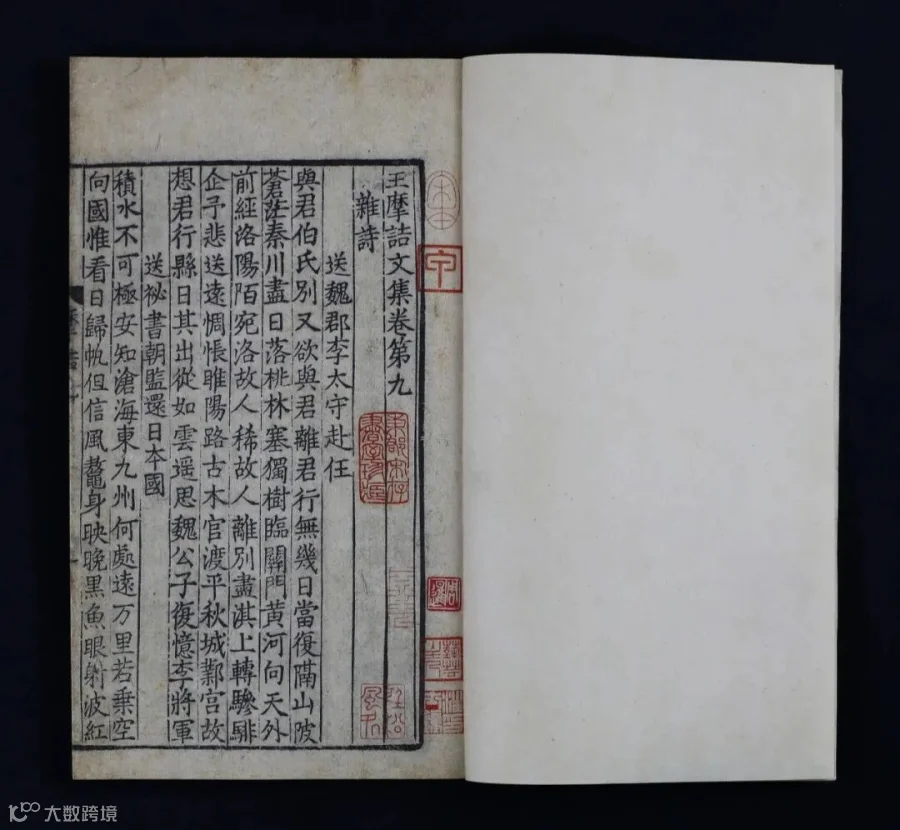 王摩詰文集卷第九
雜詩
送魏郡李太守赴任
與君伯氏別又欲與君離君行無幾日當復隔山陂
蒼茫秦川盡日落桃林塞獨樹臨關門黄河向天外
前經洛陽陌宛洛故人稀故人離別盡淇上轉驂騑
企予悲送遠惆悵睢陽路古木官渡平秋城鄴宮故
想君行縣日其出從如雲遥思魏公子復憶李將軍
送祕書朝監還日本國
積水不可極安知滄海東九州何處遠万里若乗空
向國惟看日歸帆但信風鼇身映晚黑魚眼射波紅
宋本
東郡宋存
書室珍藏
周暹
大数跨境